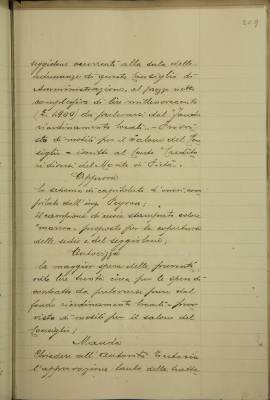 209
seggiolone occorrenti alla sala delle
adunanze di questo Consiglio di
Amministrazione, al prezzo netto
complessivo di lire millenovecento
(£. 1900) da prelevarsi dal "fondo
riordinamento locali - Provvi
sta di mobili per il Salone del Con
siglio" iscritto al Conto "Crediti
diversi" del Monte di Pietà".
Approva
lo schema di capitolato d'oneri com
pilato dall'ing. Peyron;
il campione di cuoio stampato color
"marron" proposto per la copertura
delle sedie e del seggiolone;
Autorizza
la maggior spesa delle preventi
vate lire trenta circa per le spese di
contratto da prelevarsi pure dal
fondo riordinamento locali - prov
vista di mobili per il salone del
Consiglio;
Manda
Chiedere all'Autorità Tutoria
l'approvazione tanto della tratta